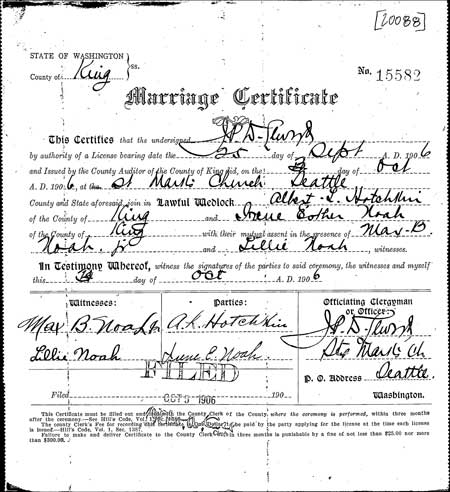 [20088]
STATE OF WASHINGTON } ss.
County of King
No. 15582
Marriage Certificate
This Certifies that the undersigned J.P.D.
by authority of a License bearing date the 25 day of Sept A. D. 1906
and Issued by the County Auditor of the County of King did, on the day of Oct
A. D. 1906, at the St Marks Church Seattle
County and State aforesaid, join in LAWFUL WEDLOCK Albert L. Hotchkin
of the County of King and Irene Esther Noah
of the County of King with their mutual assent in the presence of Max B.
Noah, jr and Lillie Noah, witnesses.
In Testimony Whereof, witness the signatures of the parties to said ceremony, the witnesses and myself
this day of Oct A. D. 1906
Witnesses: Parties: Officiating Clergyman or Officer:
Max B. Noah Jr A. L. Hotchkin J.P.D.
Lillie Noah Irene E. Noah. Marks Ch
FILED
P. O. Address Seattle.
Filed OCT 5 1906 190 Washington.
This Certificate must be filled out and the County Clerk of the County, where the ceremony is performed, within three months
after the ceremony—See Hill's Code, Vol.
The county Clerk's Fee for recording this certificate is be paid by the party applying for the license at the time each license
is issued.—Hill's Code, Vol. 1, Sec. 1387.
Failure to make and deliver Certificate to the County Clerk within three months is punishable by a fine of not less than $25.00 nor more
than $300.00.